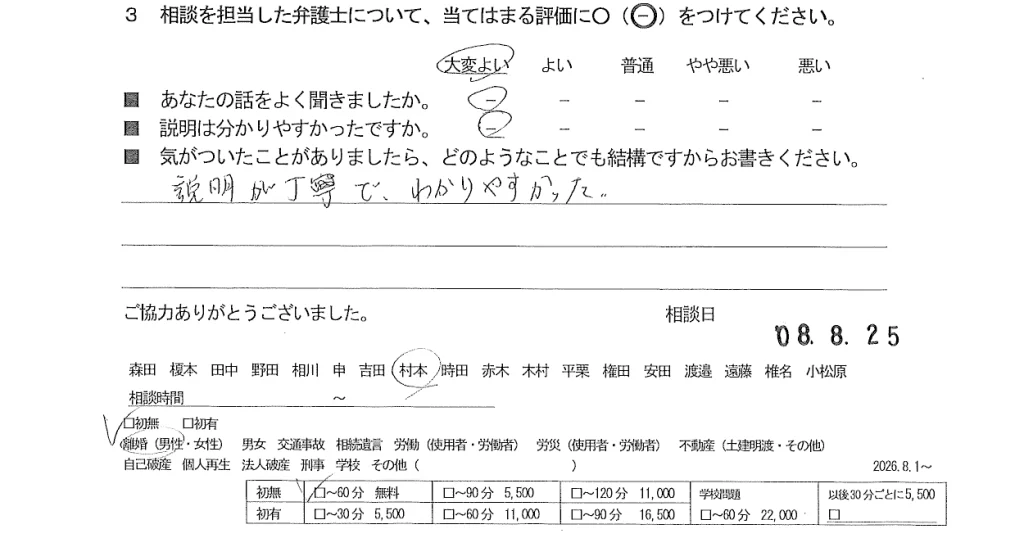 3 相談を担当した弁護士について、当てはまる評価に○（㊀）をつけてください。
大変よい よい 普通 やや悪い 悪い
■ あなたの話をよく聞きましたか。 － － － － －
■ 説明は分かりやすかったですか。 － － － － －
■ 気がついたことがありましたら、どのようなことでも結構ですからお書きください。
説明が丁寧で、わかりやすかった。
ご協力ありがとうございました。 相談日
'08. 8. 25
森田 榎本 田中 野田 相川 申 吉田 村本 時田 赤木 木村 平栗 権田 安田 渡邉 遠藤 椎名 小松原
相談時間 ～
□初無 □初有
離婚（男性・女性） 男女 交通事故 相続遺言 労働（使用者・労働者） 労災（使用者・労働者） 不動産（土建明渡・その他）
自己破産 個人再生 法人破産 刑事 学校 その他（ ） 2026.8.1～
初無 □～60分 無料 □～90分 5,500 □～120分 11,000 学校問題 以後30分ごとに5,500
初有 □～30分 5,500 □～60分 11,000 □～90分 16,500 □～60分 22,000 □